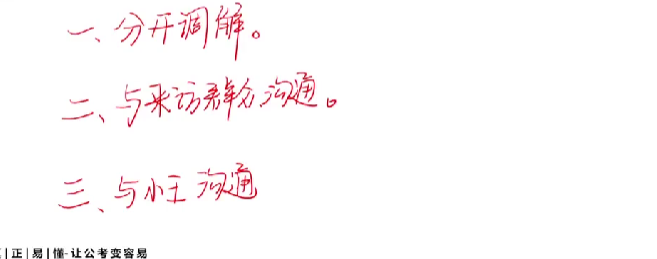 一、分开调解。
二、与来访群众沟通。
三、与小王沟通
|正|易|懂·让公考变容易